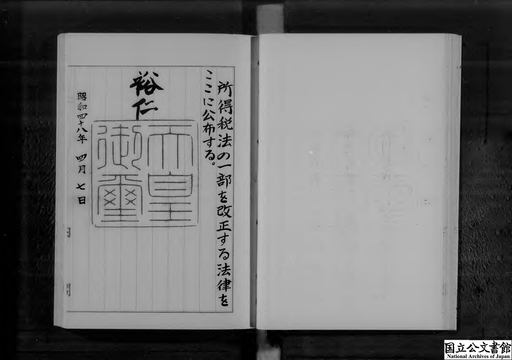 所得税法の一部を改正する法律を
ここに公布する。
裕仁
天皇
御璽
昭和四十八年 四月 七日
国立公文書館
National Archives of Japan